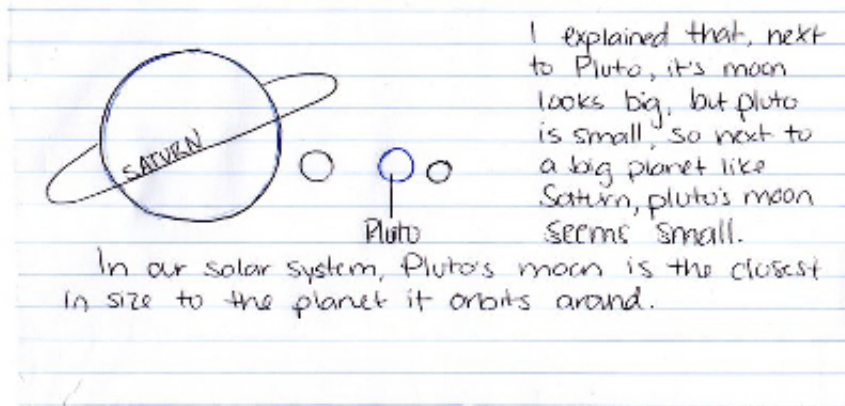 I explained that, next
to Pluto, it's moon
looks big, but pluto
is small, so next to
a big planet like
Saturn, pluto's moon
seems small.
SATURN
Pluto
In our solar system, Pluto's moon is the closest
in size to the planet it orbits around.